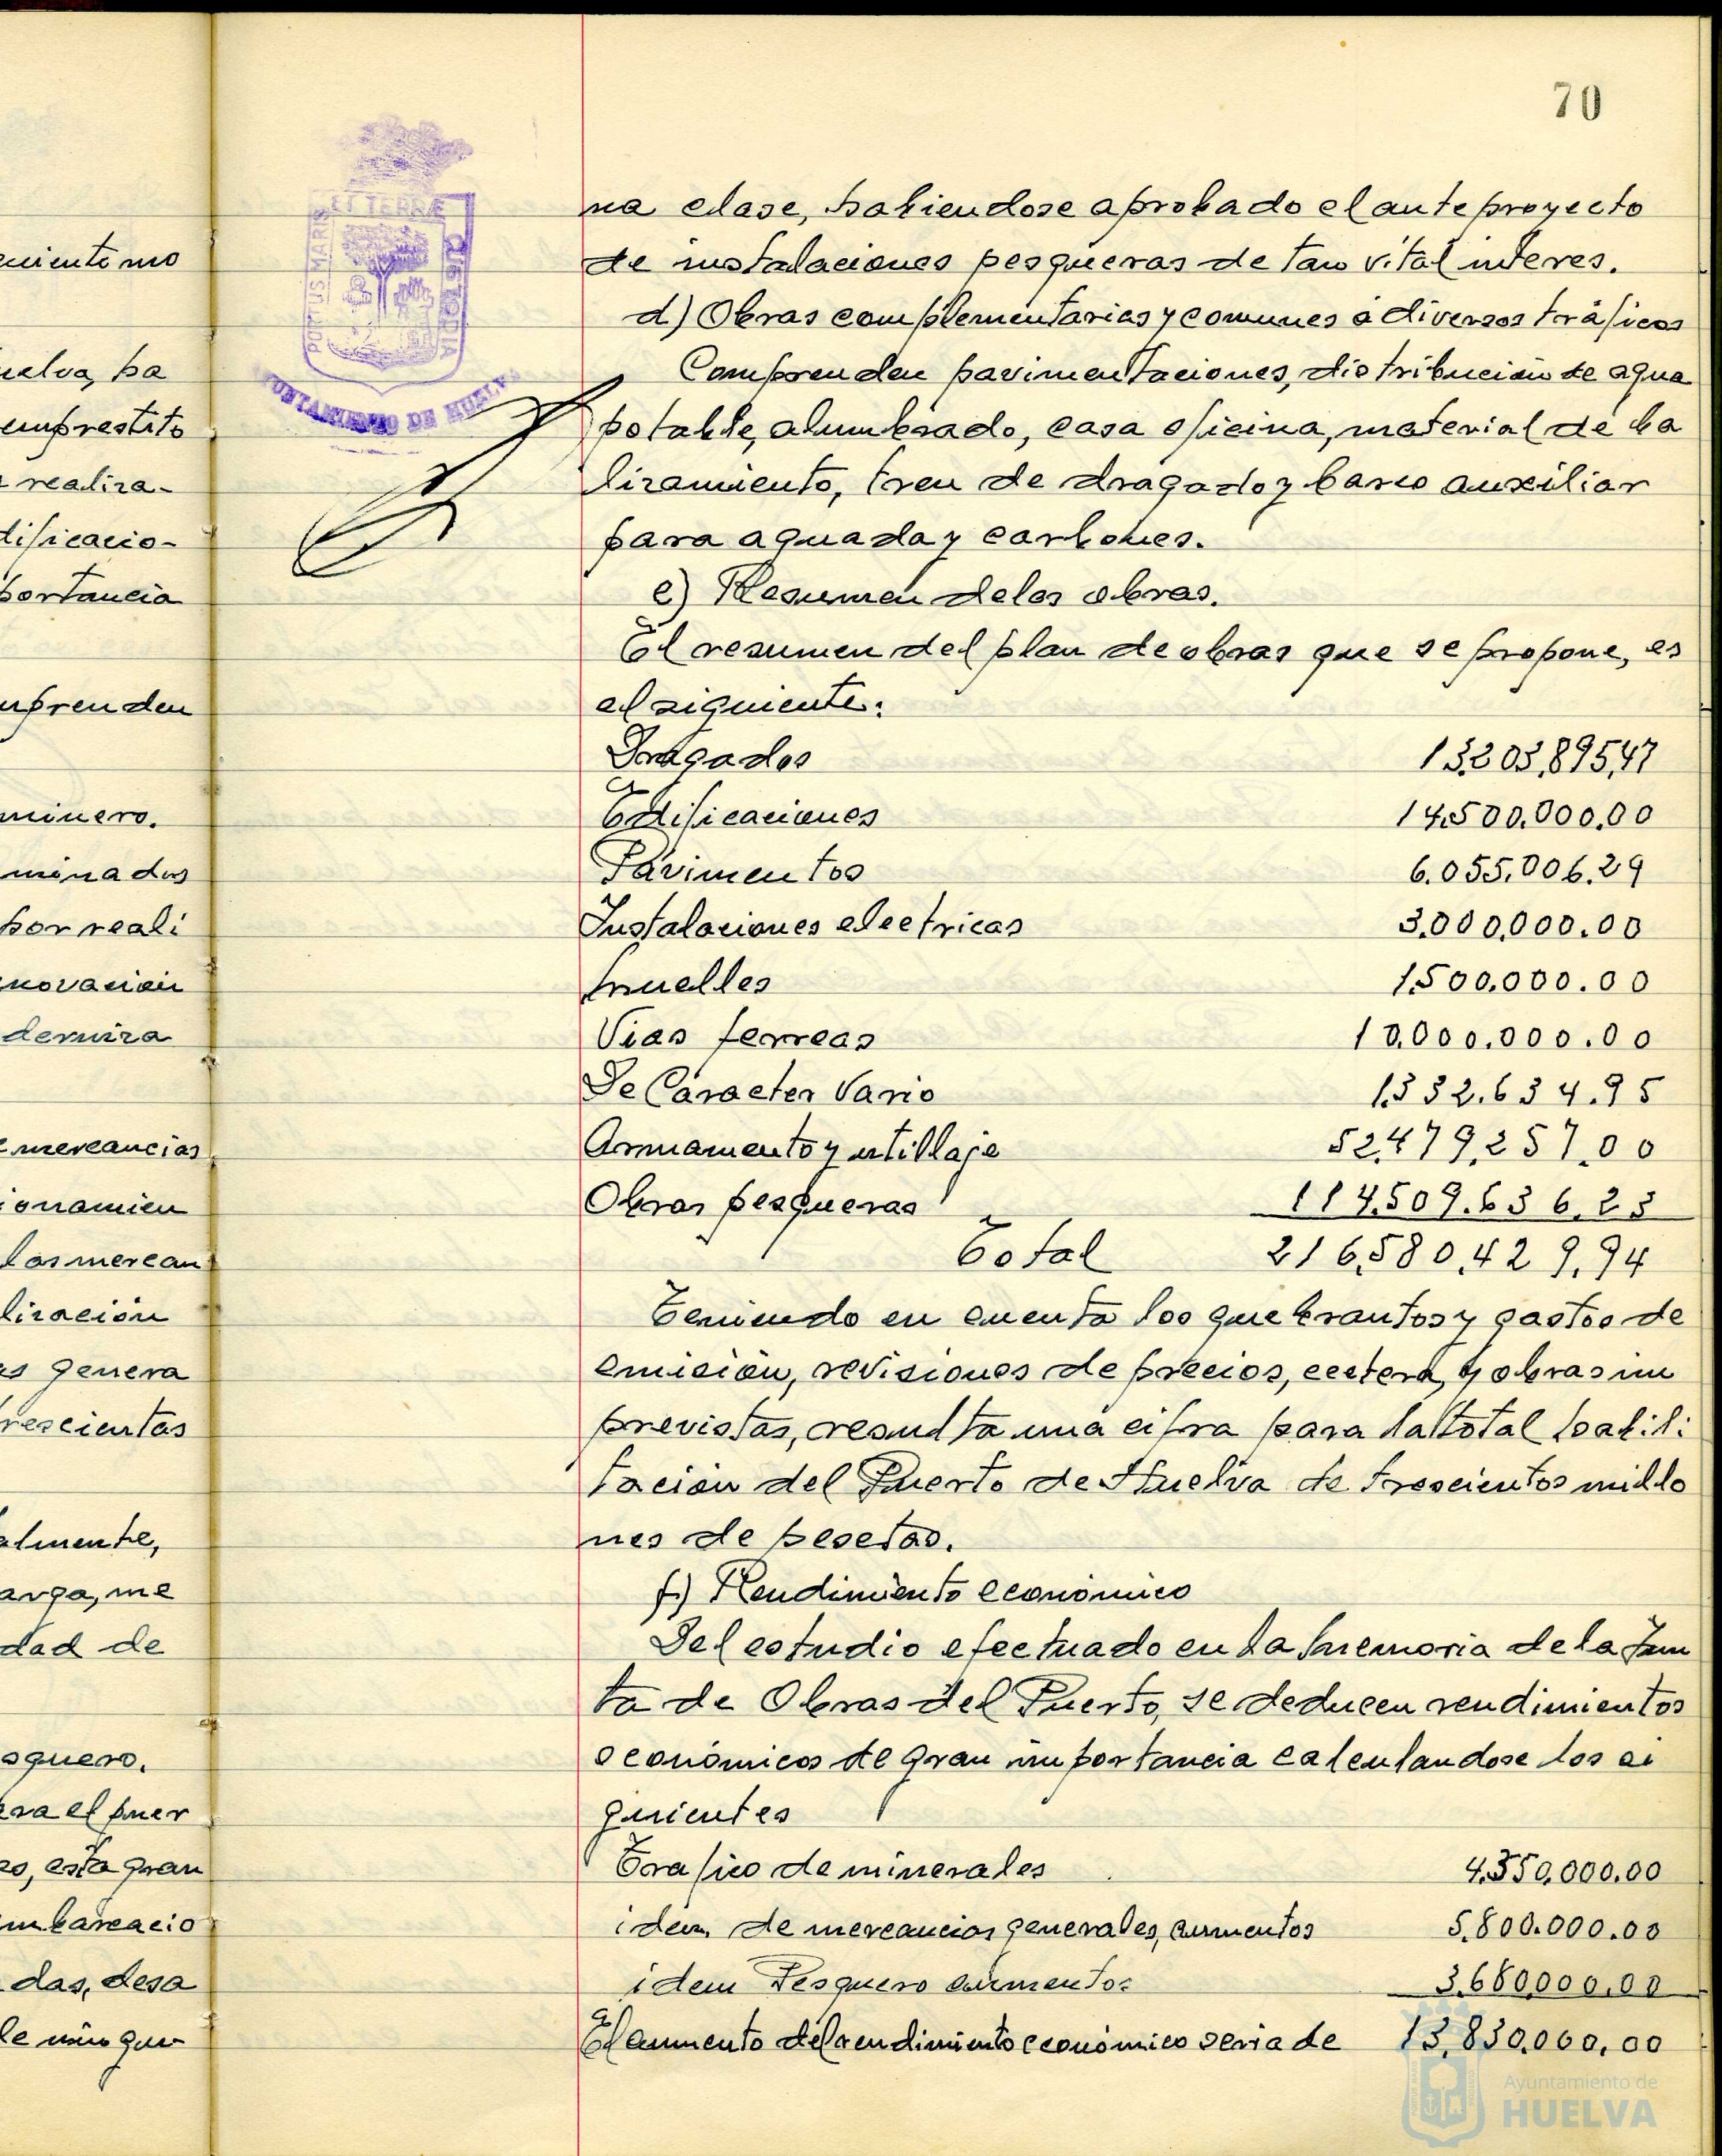 70
ET TERRÆ
PORTUS MARIS
CUSTODIA
AYUNTAMIENTO DE HUELVA
uiento mo
uelva, ha
emprestito
realiza-
dificacio-
portancia
mprenden
minero.
minados
por reali
novación
derniza
mercancias
ionamien
las mercan
lización
as genera
rescientas
almente,
arga, me
dad de
squero.
ara el puer
es, esta gran
mbarcacio
das, desa
de nin gu
na clase, habiendose aprobado el anteproyecto
de instalaciones pesqueras de tan vital interes.
d) Obras complementarias y comunes a diversos tráficos
Comprenden pavimentaciones, distribución de agua
potable, alumbrado, casa oficina, material de ba
lizamiento, tren de dragado y barco auxiliar
para aguada y carbones.
e) Resumen de las obras.
El resumen del plan de obras que se propone, es
el siguiente:
Dragados 13.203.895,47
Edificaciones 14.500.000.00
Pavimentos 6.055.006.29
Instalaciones electricas 3.000.000.00
Muelles 1.500.000.00
Vias ferreas 10.000.000.00
De Caracter Vario 1.332.634.95
Armamento y utillaje 52.479.257.00
Obras pesqueras 114.509.636.23
Total 216.580.429.94
Teniendo en cuenta los quebrantos y gastos de
emisión, revisiones de precios, ecetera, y obras im
previstas, resulta una cifra para la total habili
tación del Puerto de Huelva de trescientos millo
nes de pesetas.
f) Rendimiento económico
Del estudio efectuado en la Memoria de la Jun
ta de Obras del Puerto, se deducen rendimientos
económicos de gran importancia calculandose los si
guientes
Trafico de minerales 4.350.000.00
idem de mercancias generales, aumentos 5.800.000.00
idem Pesquero aumentos 3.680.000.00
El aumento del rendimiento económico seria de 13.830.000.00
Ayuntamiento de
HUELVA